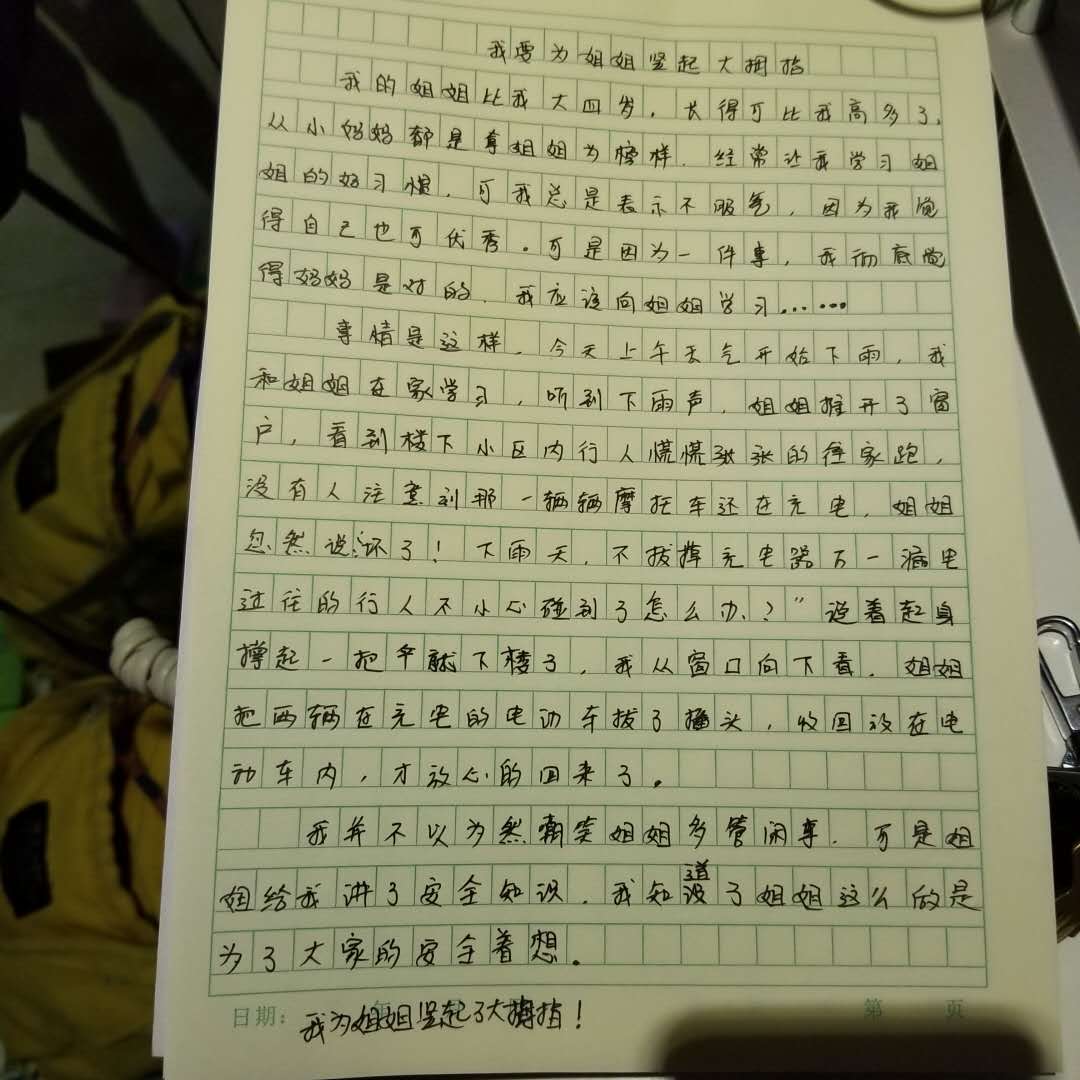 我要为姐姐竖起大拇指
我的姐姐比我大四岁，长得可比我高多了，
从小妈妈都是拿姐姐为榜样，经常让我学习姐
姐的好习惯，可我总是表示不服气，因为我觉
得自己也可优秀。可是因为一件事，我彻底觉
得妈妈是对的，我应该向姐姐学习……
事情是这样，今天上午天气开始下雨，我
和姐姐在家学习，听到下雨声，姐姐推开了窗
户，看到楼下小区内行人慌慌张张的往家跑，
没有人注意到那一辆辆摩托车还在充电，姐姐
忽然说：“坏了！下雨天，不拔掉充电器万一漏电
过往的行人不小心碰到了怎么办？”说着起身
撑起一把伞就下楼了，我从窗口向下看，姐姐
把两辆在充电的电动车拔了插头，收回放在电
动车内，才放心的回来了。
我并不以为然嘲笑姐姐多管闲事，可是姐
姐给我讲了安全知识，我知道了姐姐这么做是
为了大家的安全着想。
日期：年 第 页
我为姐姐竖起了大拇指！